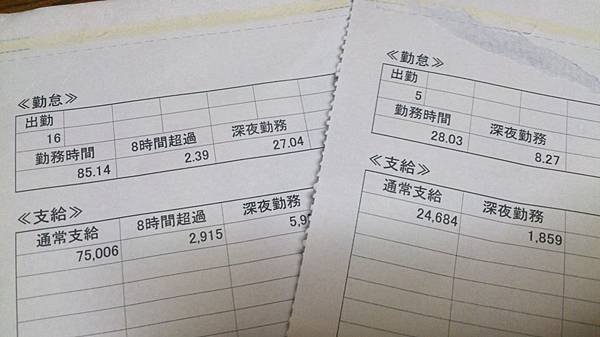 ≪勤怠≫
出勤
16
勤務時間 8時間超過 深夜勤務
85.14 2.39 27.04
≪支給≫
通常支給 8時間超過 深夜勤務
75,006 2,915 5,9
≪勤怠≫
出勤
5
勤務時間 深夜勤務
28.03 8.27
≪支給≫
通常支給 深夜勤務
24,684 1,859